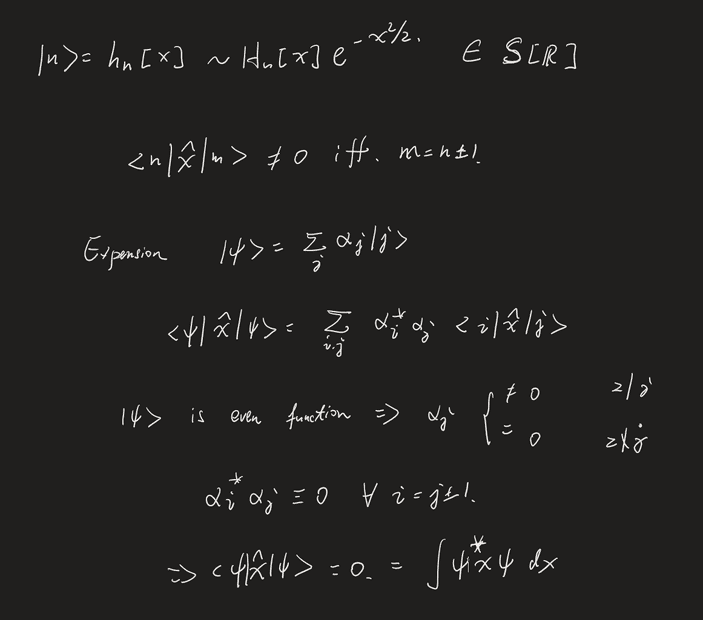 |n> = hₙ[x] ~ Hₙ[x] e^{-x²/2}. ∈ S[ℝ]
<n|x̂|m> ≠ 0 iff. m=n±1.
Expension |ψ> = Σ_j α_j|j>
<ψ|x̂|ψ> = Σ_{i,j} α_i^* α_j <i|x̂|j>
|ψ> is even function ⇒ α_j { ≠ 0 2|j
= 0 2∤j
α_i^* α_j ≡ 0 ∀ i=j±1.
⇒ <ψ|x̂|ψ> = 0. = ∫ψ^* x ψ dx